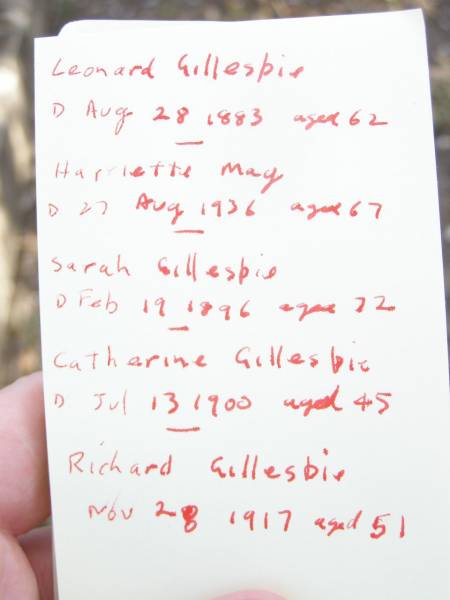 Leonard Gillespie
D Aug 28 1883 aged 62
Harriette May
D 27 Aug 1936 aged 67
Sarah Gillespie
D Feb 19 1896 aged 72
Catherine Gillespie
D Jul 13 1900 aged 45
Richard Gillespie
Nov 28 1917 aged 51